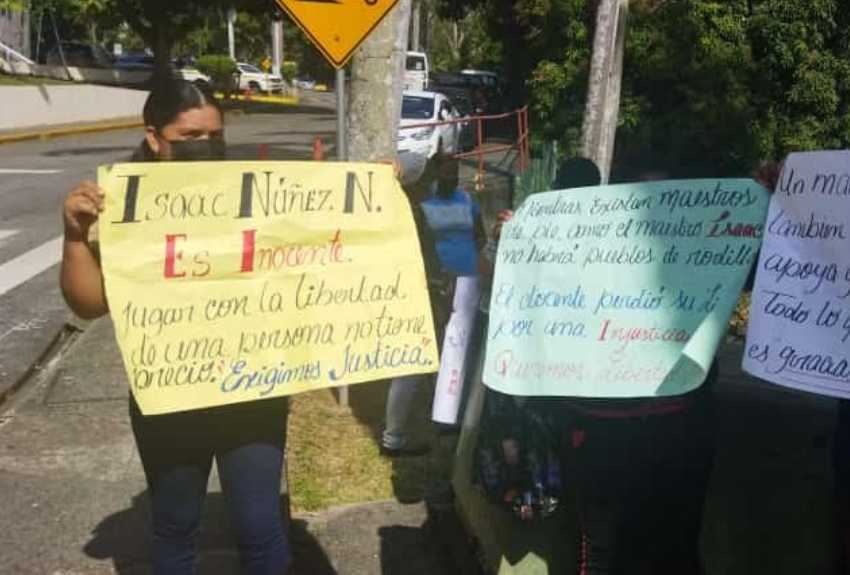 Isaac Núñez N.
Es Inocente.
jugar con la libertad
de una persona no tiene
precio. "Exigimos Justicia".
Mientras Existan maestros
de pie, como el maestro Isaac
no habrá pueblos de rodill
El docente perdió su
por una Injusticia
Queremos
Un ma
tambien
apoya y
Todo lo q
es giraaa